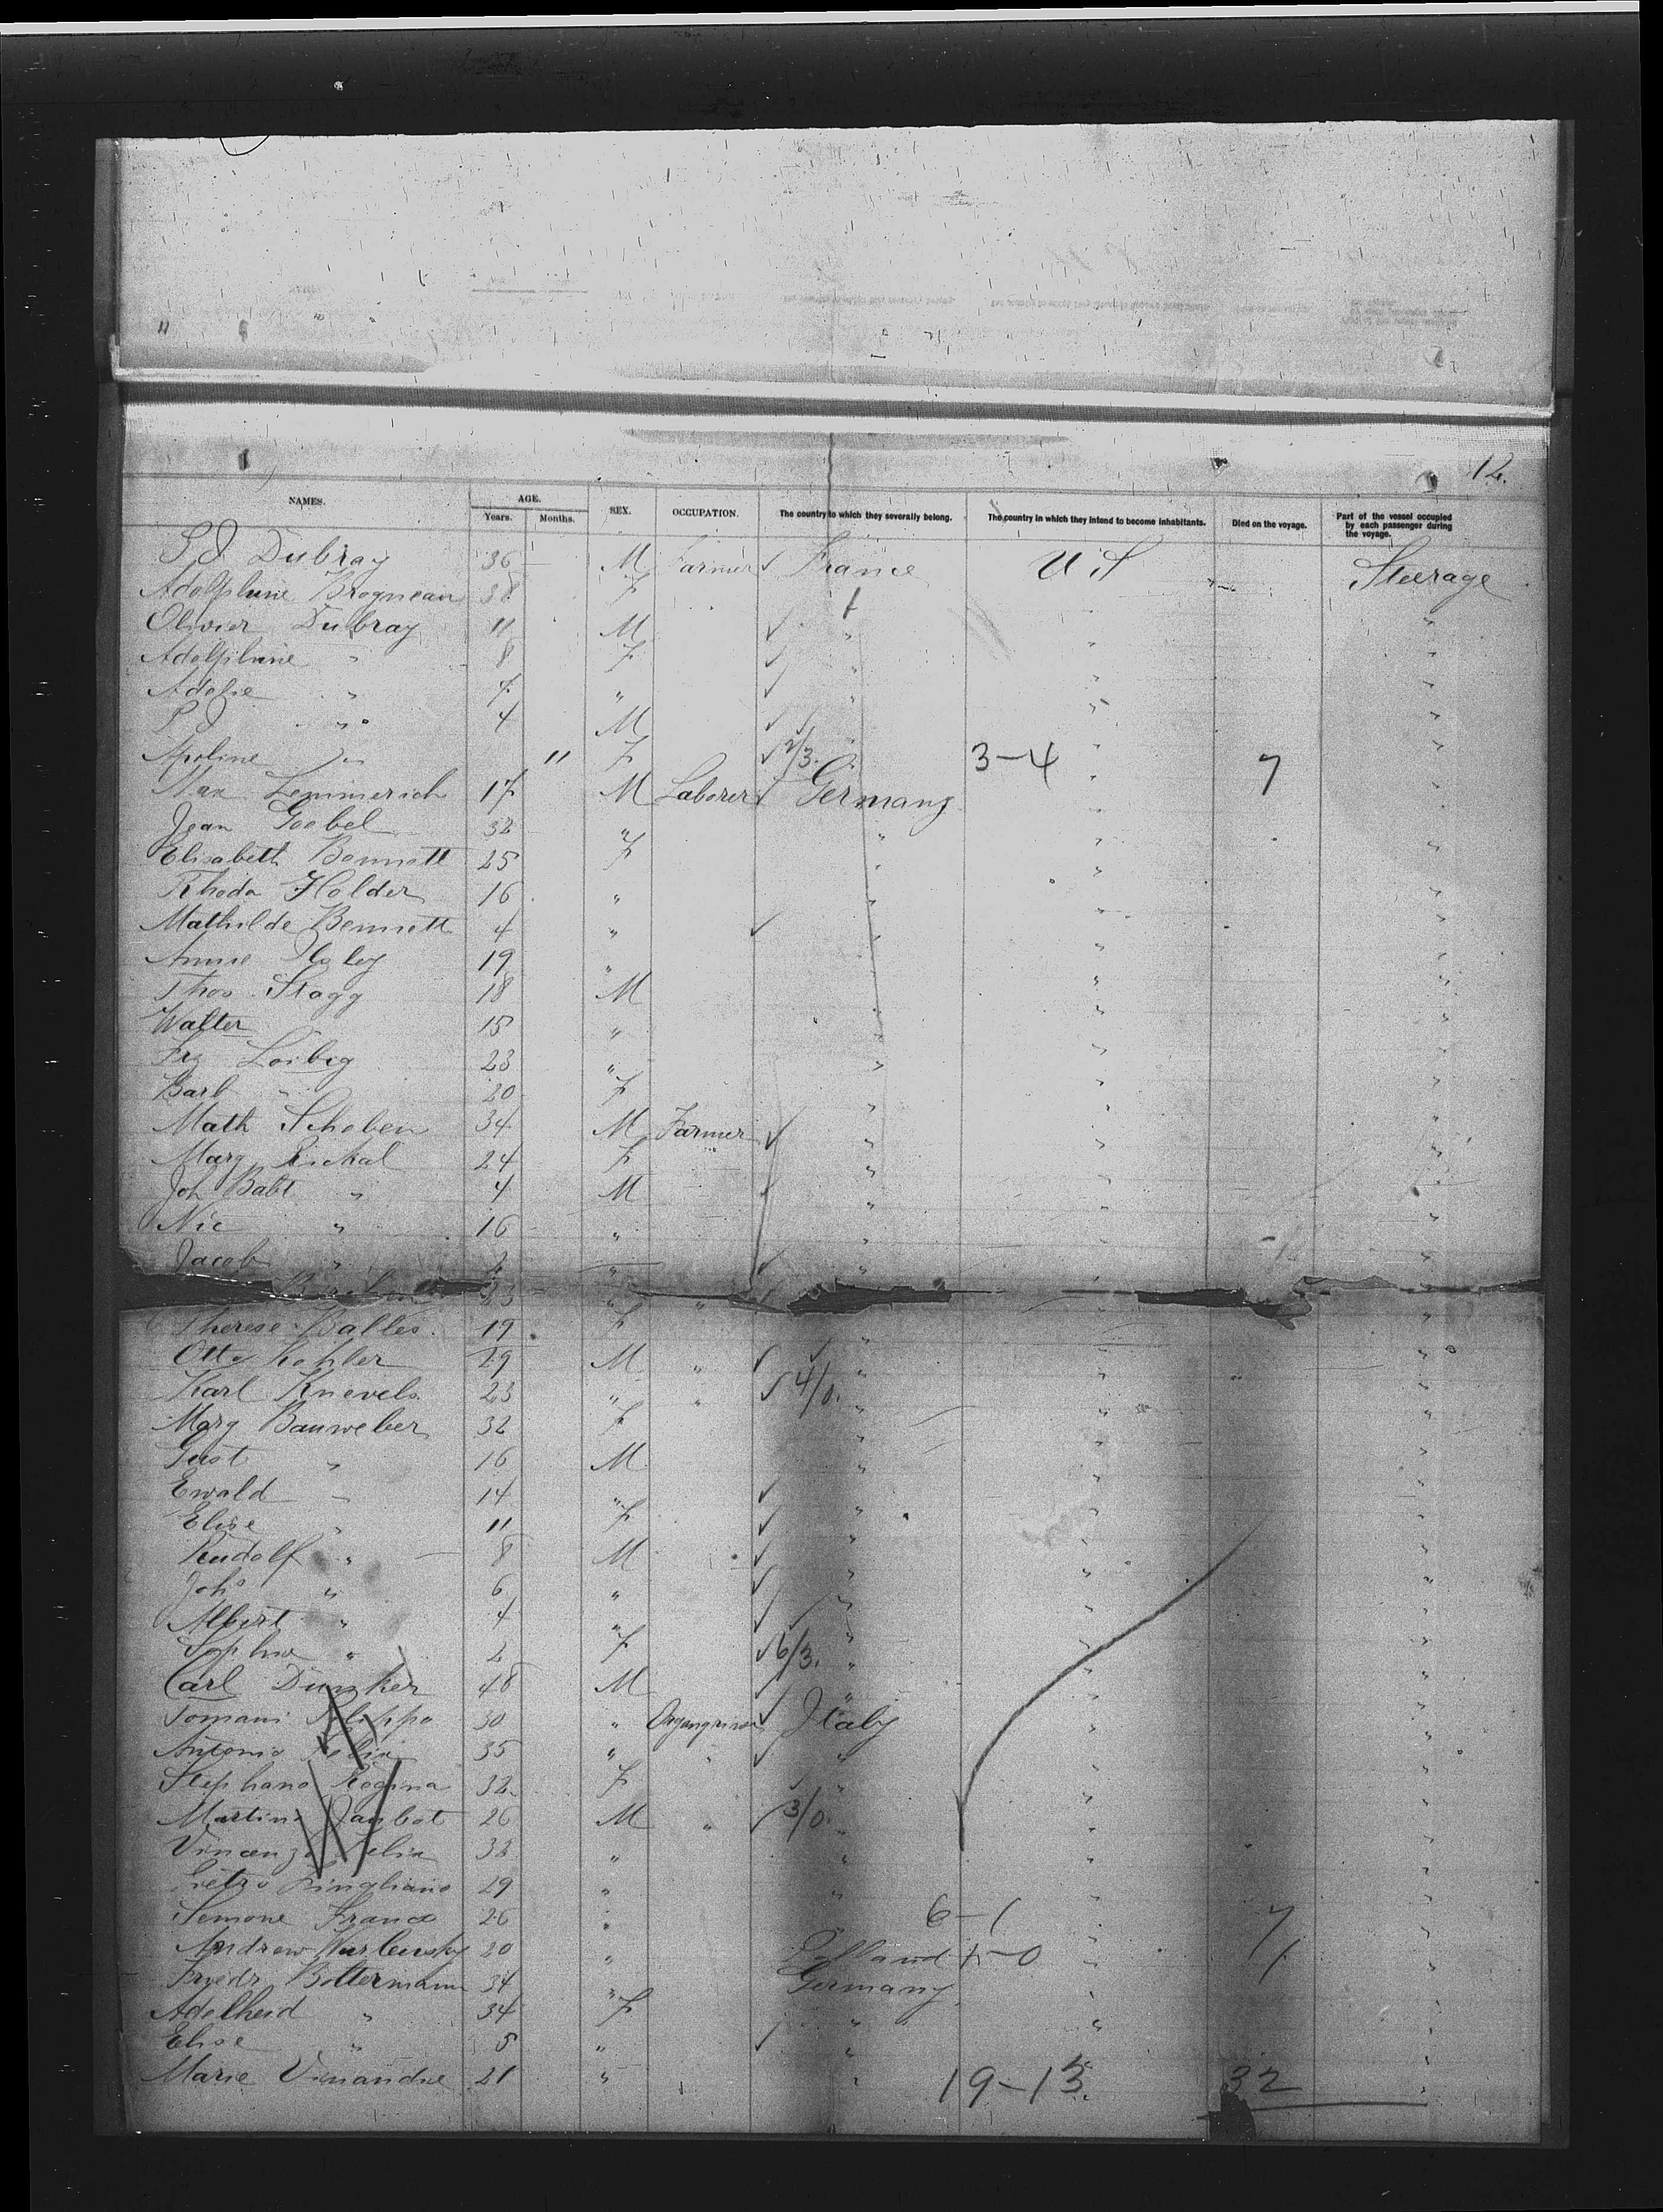 12.
NAMES. AGE. Years. Months. SEX. OCCUPATION. The country to which they severally belong. The country in which they intend to become inhabitants. Died on the voyage. Part of the vessel occupied by each passenger during the voyage.
Dubray 36 M Farmer France U S Steerage
Adolphine 38 F
Olivier Dubray 11 M " " "
Adolphine " 8 F " " "
Adolie " 7 " " " "
" 4 M " " "
Apoline " 11 F 2/3. 3-4 " 7 "
Max Lemmerich 17 M Laborer Germany " "
Jean Goebel 32 " " " "
Elisabeth Bennett 25 F " " "
Rhoda Holder 16 " " " "
Mathilde Bennett 4 " " " "
Annie 19 " " " "
Thos Stagg 18 M " " "
Walter 15 " " " "
Frz Loibig 23 " " " "
Barb " 20 F " " "
Math Schoben 34 M Farmer " " "
Marg 24 F " " "
Joh " 4 M " " "
Nic " 16 " " " "
Jacob " " " " "
23 " " " "
Therese Balles 19 F " " "
Otto Kohler 29 M " " " "
Karl Knevels 23 " " 4/0. " " "
Marg Bauweber 32 F " " "
Gust " 16 M " " "
Ewald " 14 " " " "
Elise " 11 F " " "
Rudolf " 8 M " " "
Johs " 6 " " " "
Albert " 4 " " " "
Sophie " 2 F 6/3. " " "
Carl Dunker 48 M " " "
Tomani 30 " Italy " "
Antonio 35 " " " " "
Stephano Regina 32 F " " "
Martino 26 M " 3/0. " " "
Vincenzo 32 " " " "
Pietro 29 " " " "
Semone 26 " 6-1 " 7 "
Andrew 20 " 1-0 " 1 "
Friedr Boltermann 34 " Germany " "
Adelheid " 34 F " " "
Elise " 5 " " " "
Marie 21 " " 19-13 32 "